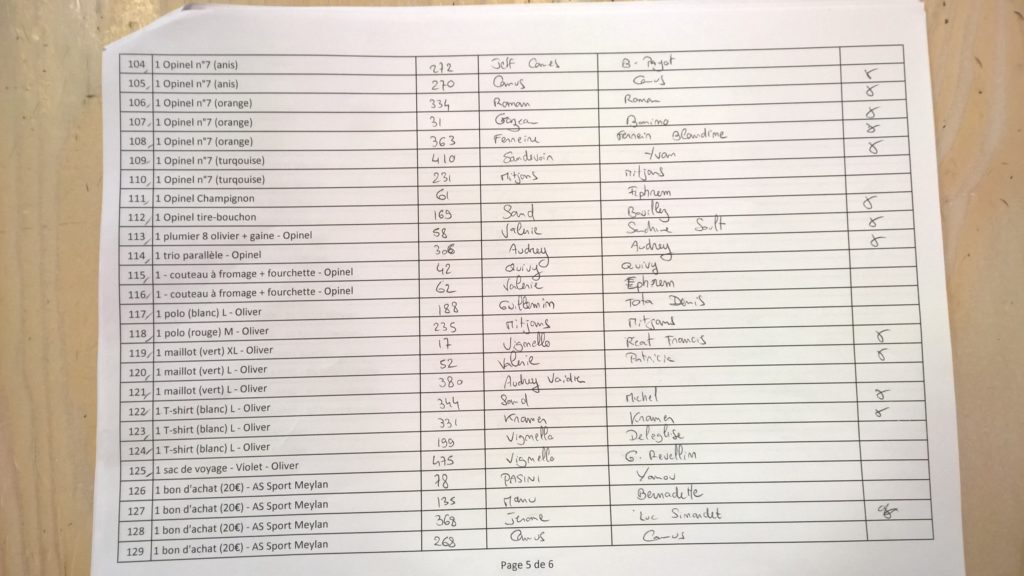 104 1 Opinel n°7 (anis) 272 Jeff Camus B. Payot
105 1 Opinel n°7 (anis) 270 Camus Camus 8
106 1 Opinel n°7 (orange) 334 Roman Roman 8
107 1 Opinel n°7 (orange) 31 8
108 1 Opinel n°7 (orange) 363 Ferreine Ferrein Blandine 8
109 1 Opinel n°7 (turqouise) 410 Sandevoin Yvan 8
110 1 Opinel n°7 (turqouise) 231 Mitjans Mitjans
111 1 Opinel Champignon 61 Ephrem
112 1 Opinel tire-bouchon 169 Sand 8
113 1 plumier 8 olivier + gaine - Opinel 58 Valérie Sandrine Soult 8
114 1 trio parallèle - Opinel 306 Audrey Audrey 8
115 1 - couteau à fromage + fourchette - Opinel 42 Quivy Quivy
116 1 - couteau à fromage + fourchette - Opinel 62 Valerie Ephrem
117 1 polo (blanc) L - Oliver 188 Guillemin Tota Denis
118 1 polo (rouge) M - Oliver 235 Mitjans Mitjans
119 1 maillot (vert) XL - Oliver 17 Vignello Francis 8
120 1 maillot (vert) L - Oliver 52 Valerie Patricia 8
121 1 maillot (vert) L - Oliver 380 Audrey
122 1 T-shirt (blanc) L - Oliver 344 Sand Michel 8
123 1 T-shirt (blanc) L - Oliver 331 Kramer Kramer 8
124 1 T-shirt (blanc) L - Oliver 199 Vignello Deleglise
125 1 sac de voyage - Violet - Oliver 475 Vignello G. Revellin
126 1 bon d'achat (20€) - AS Sport Meylan 78 PASINI Yanou
127 1 bon d'achat (20€) - AS Sport Meylan 135 Manu Bernadette
128 1 bon d'achat (20€) - AS Sport Meylan 368 Jérome Luc Simandet 8
129 1 bon d'achat (20€) - AS Sport Meylan 268 Camus Camus
Page 5 de 6